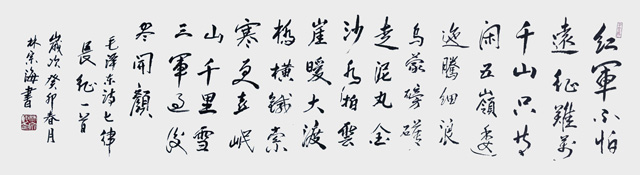 红軍不怕
遠征難萬
千山只等
闲五嶺逶
迤騰細浪
乌蒙磅礴
走泥丸金
沙水拍雲
崖暖大渡
橋横鐵索
寒更喜岷
山千里雪
三軍过後
尽開顔
毛澤东詩七律
長征一首
歲次癸卯春月
林宗海書